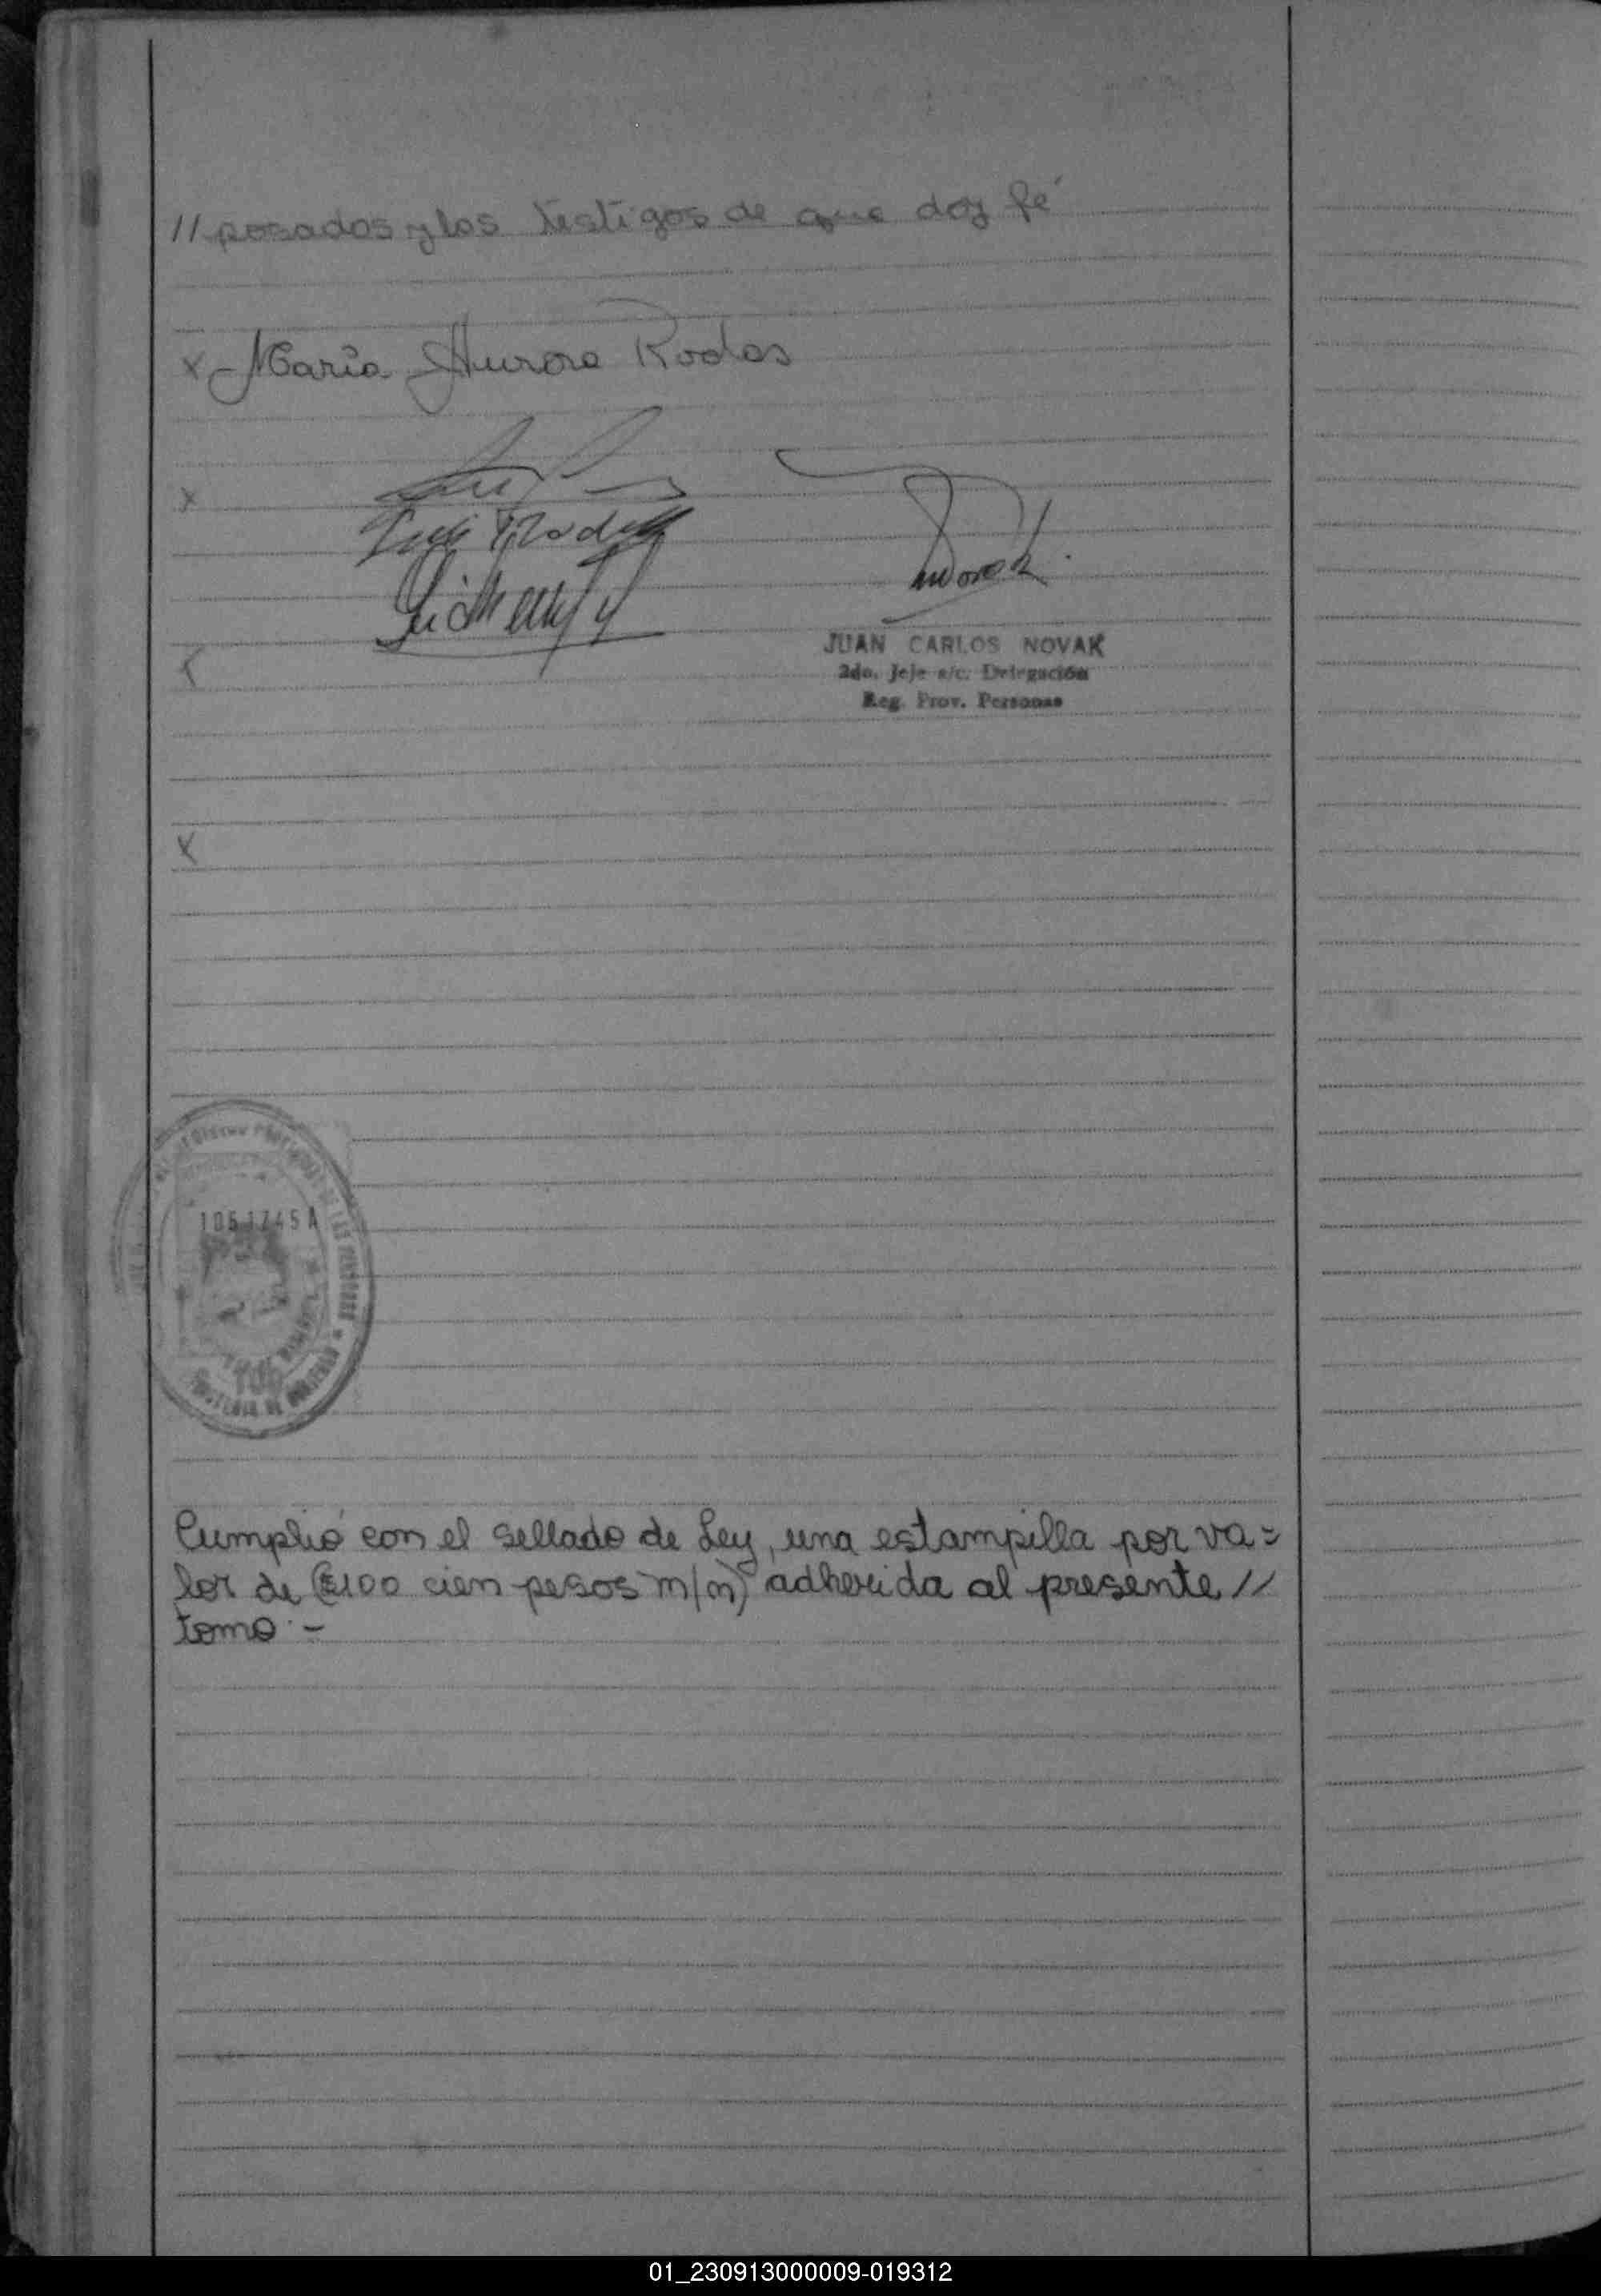 // posados y los testigos de que doy fé
x María Aurora Rodas
x
JUAN CARLOS NOVAK
2do. Jefe a/c. Delegación
Reg. Prov. Personas
x
x
REGISTRO PROVINCIAL DE LAS PERSONAS
1051745A
100
Cumplió con el sellado de Ley, una estampilla por va=
lor de ($100 cien pesos m/n) adherida al presente //
tomo.-
01_230913000009-019312